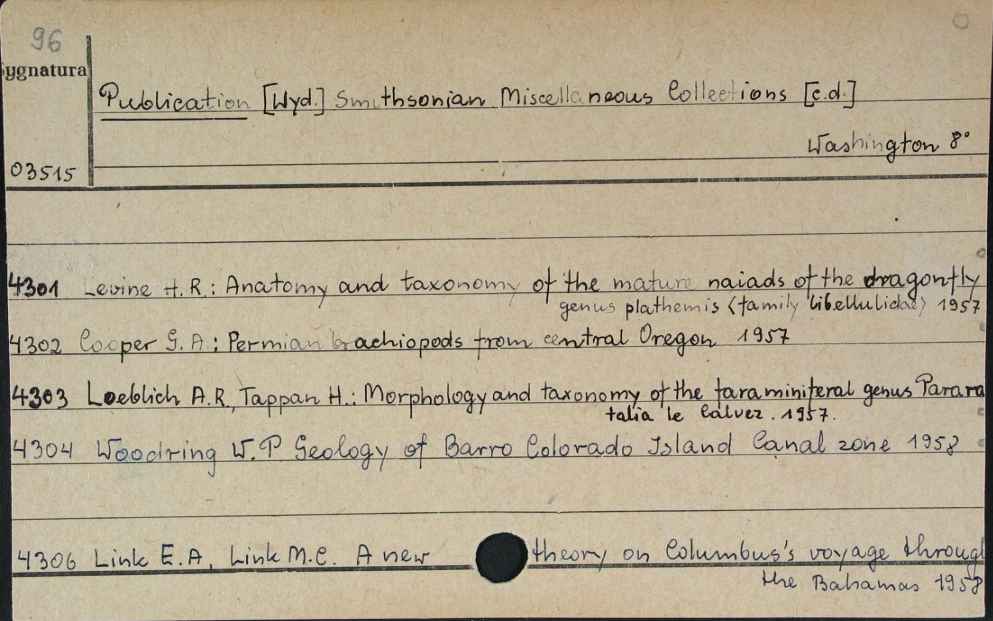 96
ygnatura
Publication [Wyd.] Smithsonian Miscellaneous Collections [c.d.]
Washington 8°
03515
4301 Levine H. R.: Anatomy and taxonomy of the mature naiads of the dragonfly
genus plathemis (family libellulidae) 1957
4302 Cooper G. A.: Permian brachiopods from central Oregon 1957
4303 Loeblich A.R, Tappan H.: Morphology and taxonomy of the faraminiferal genus Parara
talia le Calvez. 1957.
4304 Woodring W.P Geology of Barro Colorado Island Canal zone 1958
4306 Link E.A, Link M.C. A new theory on Columbus's voyage throug
the Bahamas 1958